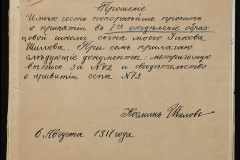 Прошение
Имѣю честь покорнѣйше просить
о принятіи въ отдѣленіе образ
цовой школы сына моего Якова
Шилова. При семъ прилагаю
слѣдующіе документы: метрическую
выпись за №72 и свидѣтельство
о привитіи оспы №73
Шиловъ
6 Августа 1911 года